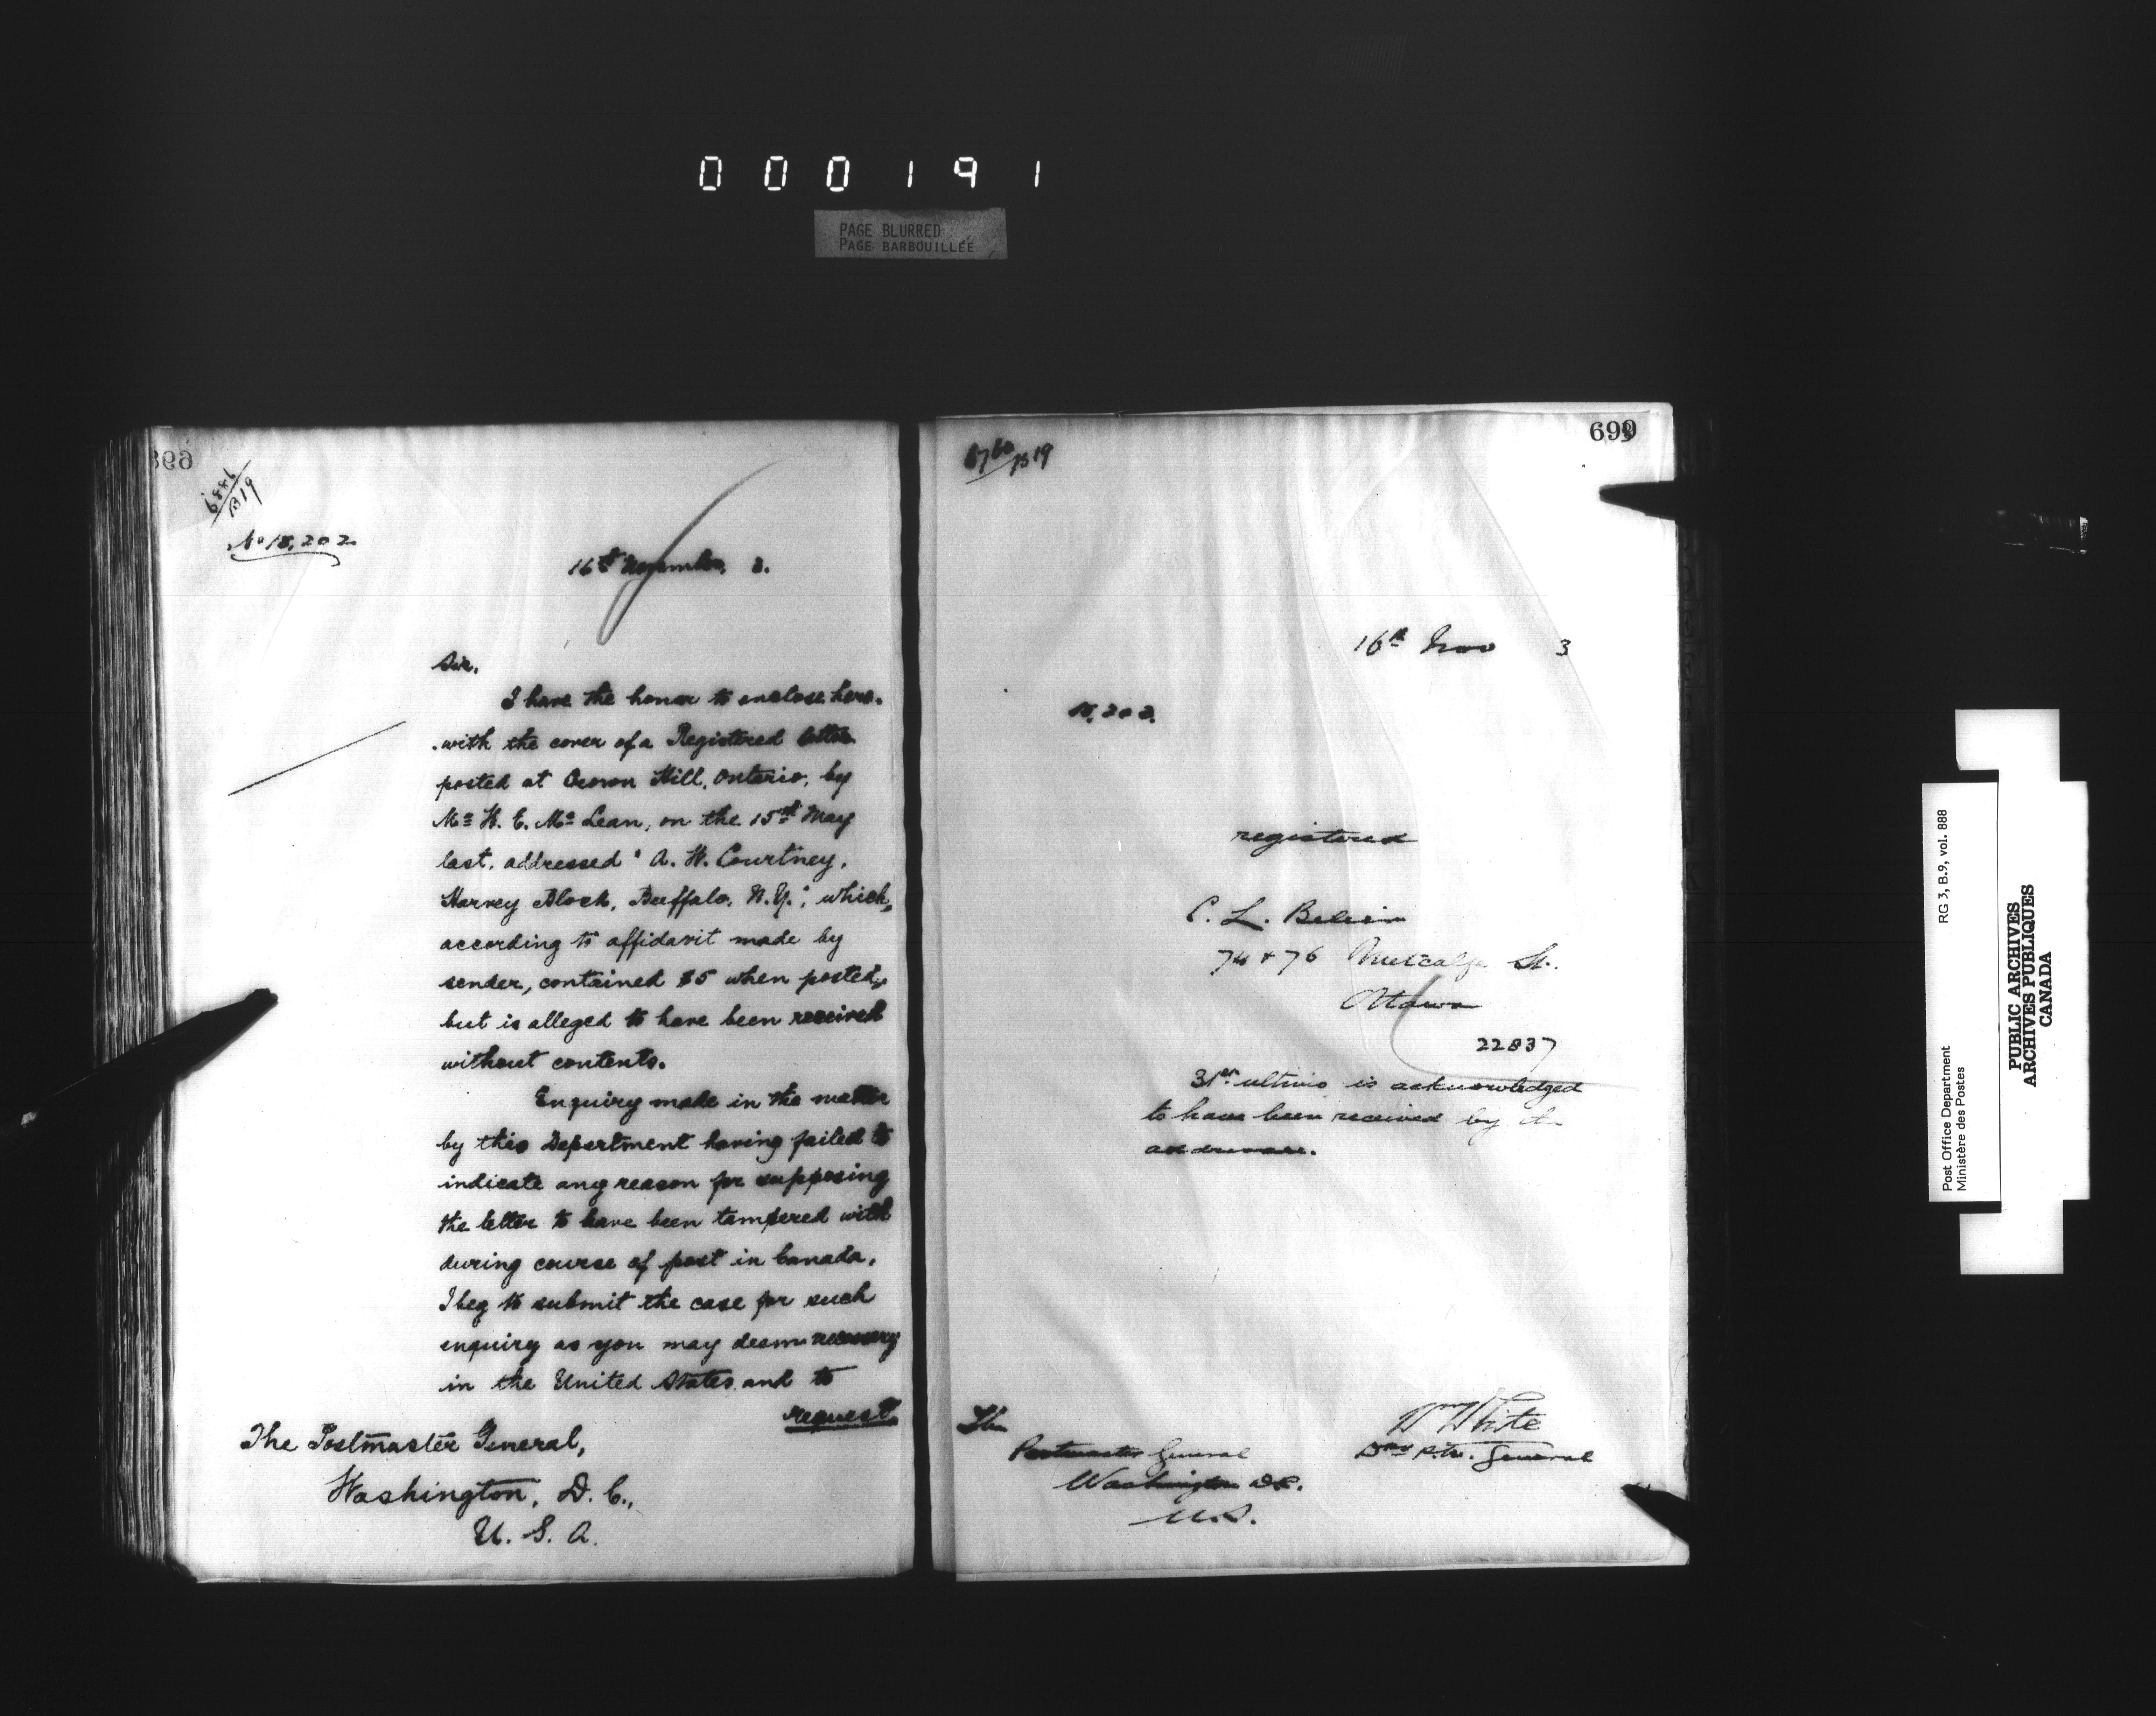 000191
PAGE BLURRED
PAGE BARBOUILLÉE
698
6886/B19
No 18,202
16th November, 3.
Sir,
I have the honor to enclose here-
with the cover of a Registered letter
posted at Crown Hill, Ontario, by
Mr H. E. Mc Lean, on the 15th May
last, addressed "A. H. Courtney,
Harvey Block, Buffalo, N.Y.", which,
according to affidavit made by
sender, contained $5 when posted,
but is alleged to have been received
without contents.
Enquiry made in the matter
by this Department having failed to
indicate any reason for supposing
the letter to have been tampered with
during course of post in Canada,
I beg to submit the case for such
enquiry as you may deem necessary
in the United States, and to
request
The Postmaster General,
Washington, D.C.,
U. S. A.
699
B19
16th Nov 3
registered
C. L.
74 & 76 Metcalfe St.
Ottawa
22837
31st ultimo, is acknowledged
to have been received by the
addressee.
The
Postmaster General
Washington DC.
U.S.
W White
General
Post Office Department
Ministère des Postes
RG 3, B.9, vol. 888
PUBLIC ARCHIVES
ARCHIVES PUBLIQUES
CANADA